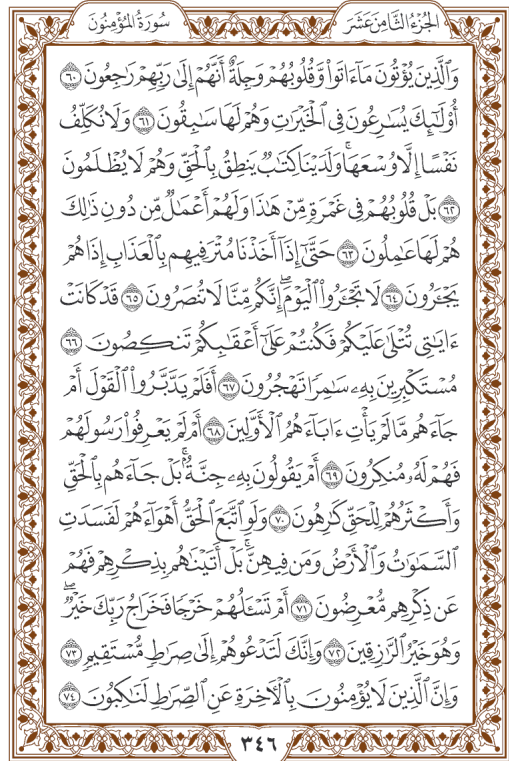 الجزء الثامن عشر
سورة المؤمنون
وَٱلَّذِينَ يُؤْتُونَ مَآ ءَاتَوا۟ وَّقُلُوبُهُمْ وَجِلَةٌ أَنَّهُمْ إِلَىٰ رَبِّهِمْ رَٰجِعُونَ ٦٠
أُو۟لَـٰٓئِكَ يُسَـٰرِعُونَ فِى ٱلْخَيْرَٰتِ وَهُمْ لَهَا سَـٰبِقُونَ ٦١ وَلَا نُكَلِّفُ
نَفْسًا إِلَّا وُسْعَهَا ۖ وَلَدَيْنَا كِتَـٰبٌ يَنطِقُ بِٱلْحَقِّ وَهُمْ لَا يُظْلَمُونَ
٦٢ بَلْ قُلُوبُهُمْ فِى غَمْرَةٍ مِّنْ هَـٰذَا وَلَهُمْ أَعْمَـٰلٌ مِّن دُونِ ذَٰلِكَ
هُمْ لَهَا عَـٰمِلُونَ ٦٣ حَتَّىٰٓ إِذَآ أَخَذْنَا مُتْرَفِيهِم بِٱلْعَذَابِ إِذَا هُمْ
يَجْـَٔرُونَ ٦٤ لَا تَجْـَٔرُوا۟ ٱلْيَوْمَ ۖ إِنَّكُم مِّنَّا لَا تُنصَرُونَ ٦٥ قَدْ كَانَتْ
ءَايَـٰتِى تُتْلَىٰ عَلَيْكُمْ فَكُنتُمْ عَلَىٰٓ أَعْقَـٰبِكُمْ تَنكِصُونَ ٦٦
مُسْتَكْبِرِينَ بِهِۦ سَـٰمِرًا تَهْجُرُونَ ٦٧ أَفَلَمْ يَدَّبَّرُوا۟ ٱلْقَوْلَ أَمْ
جَآءَهُم مَّا لَمْ يَأْتِ ءَابَآءَهُمُ ٱلْأَوَّلِينَ ٦٨ أَمْ لَمْ يَعْرِفُوا۟ رَسُولَهُمْ
فَهُمْ لَهُۥ مُنكِرُونَ ٦٩ أَمْ يَقُولُونَ بِهِۦ جِنَّةٌۢ ۚ بَلْ جَآءَهُم بِٱلْحَقِّ
وَأَكْثَرُهُمْ لِلْحَقِّ كَـٰرِهُونَ ٧٠ وَلَوِ ٱتَّبَعَ ٱلْحَقُّ أَهْوَآءَهُمْ لَفَسَدَتِ
ٱلسَّمَـٰوَٰتُ وَٱلْأَرْضُ وَمَن فِيهِنَّ ۚ بَلْ أَتَيْنَـٰهُم بِذِكْرِهِمْ فَهُمْ
عَن ذِكْرِهِم مُّعْرِضُونَ ٧١ أَمْ تَسْـَٔلُهُمْ خَرْجًا فَخَرَاجُ رَبِّكَ خَيْرٌ ۖ
وَهُوَ خَيْرُ ٱلرَّٰزِقِينَ ٧٢ وَإِنَّكَ لَتَدْعُوهُمْ إِلَىٰ صِرَٰطٍ مُّسْتَقِيمٍ ٧٣
وَإِنَّ ٱلَّذِينَ لَا يُؤْمِنُونَ بِٱلْـَٔاخِرَةِ عَنِ ٱلصِّرَٰطِ لَنَـٰكِبُونَ ٧٤
٣٤٦